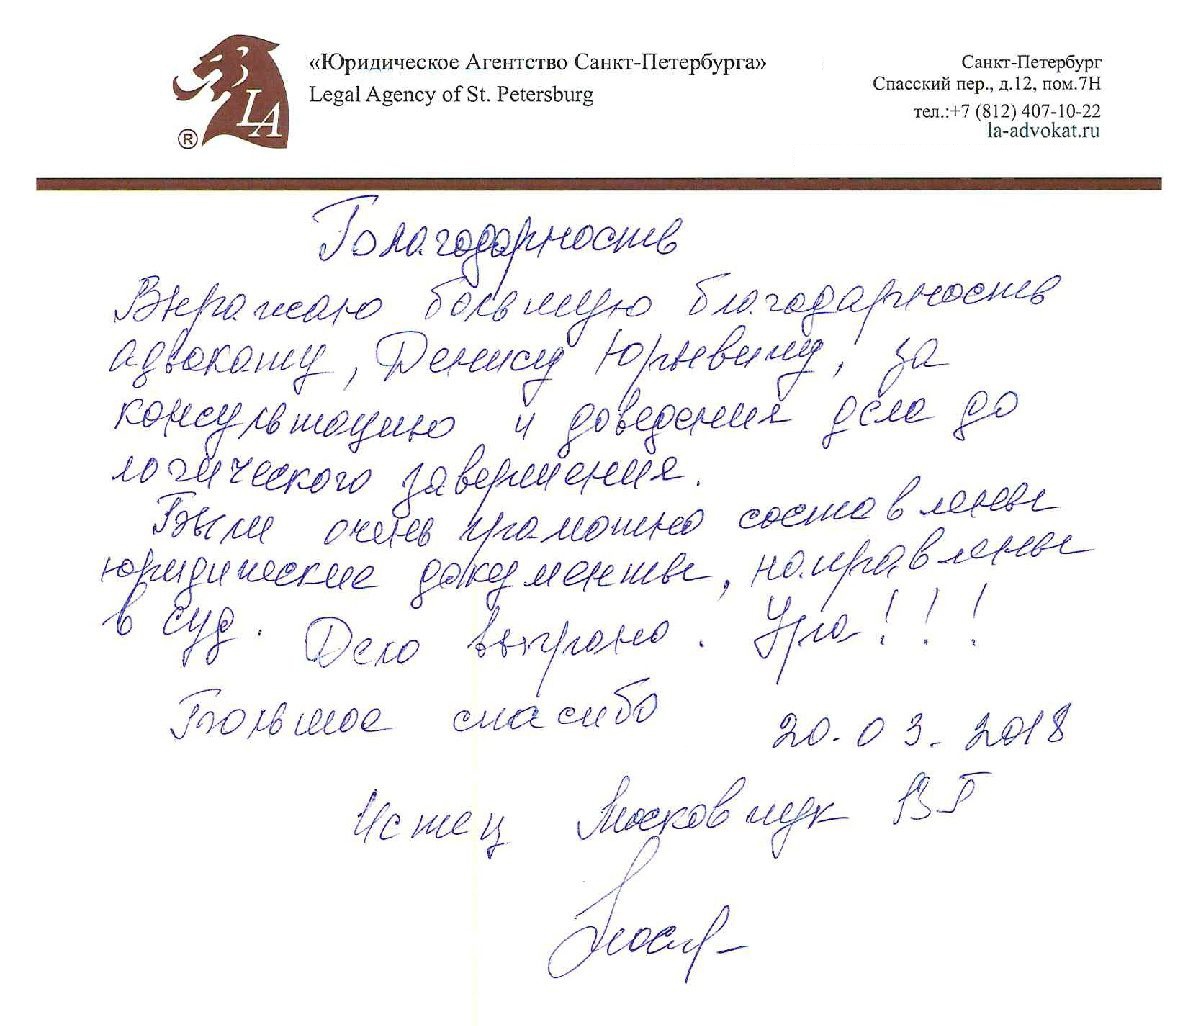 «Юридическое Агентство Санкт-Петербурга»
Legal Agency of St. Petersburg
LA
®
Санкт-Петербург
Спасский пер., д.12, пом.7Н
тел.:+7 (812) 407-10-22
la-advokat.ru
Благодарность
Выражаю большую благодарность
адвокату, Денису Юрьевичу, за
консультацию и доведения дела до
логического завершения.
Были очень грамотно составлены
юридические документы, направлены
в суд. Дело выграно. Ура!!!
Большое спасибо
20.03.2018
Истец Московчук В Г